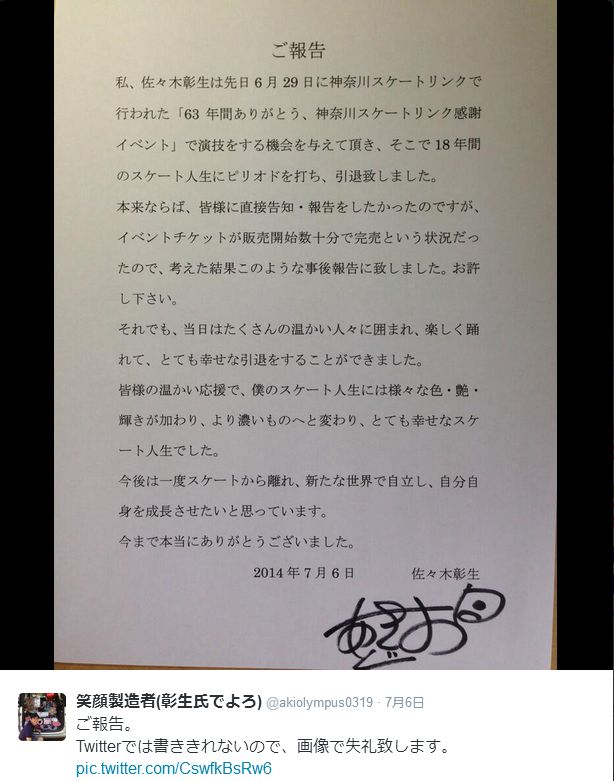 ご報告
私、佐々木彰生は先日6月29日に神奈川スケートリンクで
行われた「63年間ありがとう、神奈川スケートリンク感謝
イベント」で演技をする機会を与えて頂き、そこで18年間
のスケート人生にピリオドを打ち、引退致しました。
本来ならば、皆様に直接告知・報告をしたかったのですが、
イベントチケットが販売開始数十分で完売という状況だっ
たので、考えた結果このような事後報告に致しました。お許
し下さい。
それでも、当日はたくさんの温かい人々に囲まれ、楽しく踊
れて、とても幸せな引退をすることができました。
皆様の温かい応援で、僕のスケート人生には様々な色・艶・
輝きが加わり、より濃いものへと変わり、とても幸せなスケ
ート人生でした。
今後は一度スケートから離れ、新たな世界で自立し、自分自
身を成長させたいと思っています。
今まで本当にありがとうございました。
2014年7月6日 佐々木彰生
あきお
笑顔製造者(彰生氏でよろ) @akiolympus0319 · 7月6日
ご報告。
Twitterでは書ききれないので、画像で失礼致します。
pic.twitter.com/CswfkBsRw6